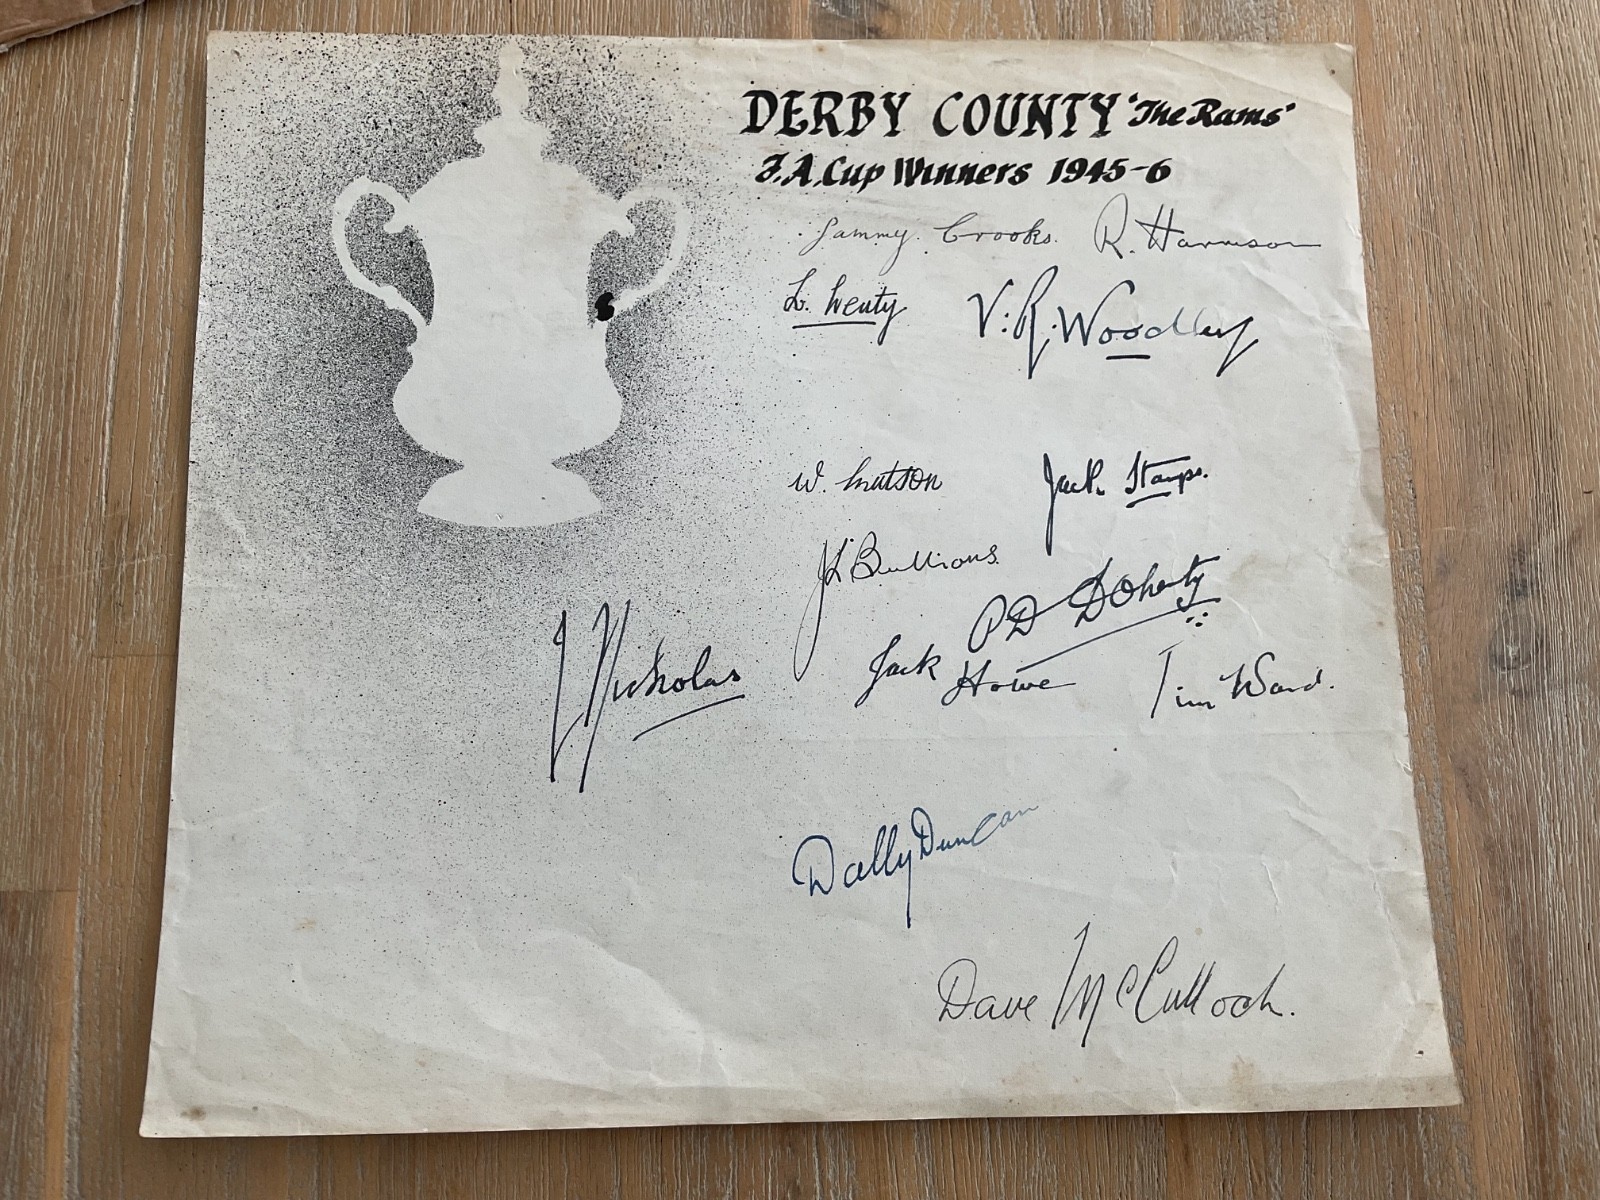 DERBY COUNTY 'The Rams'
F.A. Cup Winners 1945-6
Sammy Crooks. R. Harrison
L. Leuty V. R. Woodley
W. Musson Jack Stamps.
J L Bullions.
PD Doherty
J Nicholas
Jack Howe Tim Ward.
Dally Duncan
Dave McCulloch.